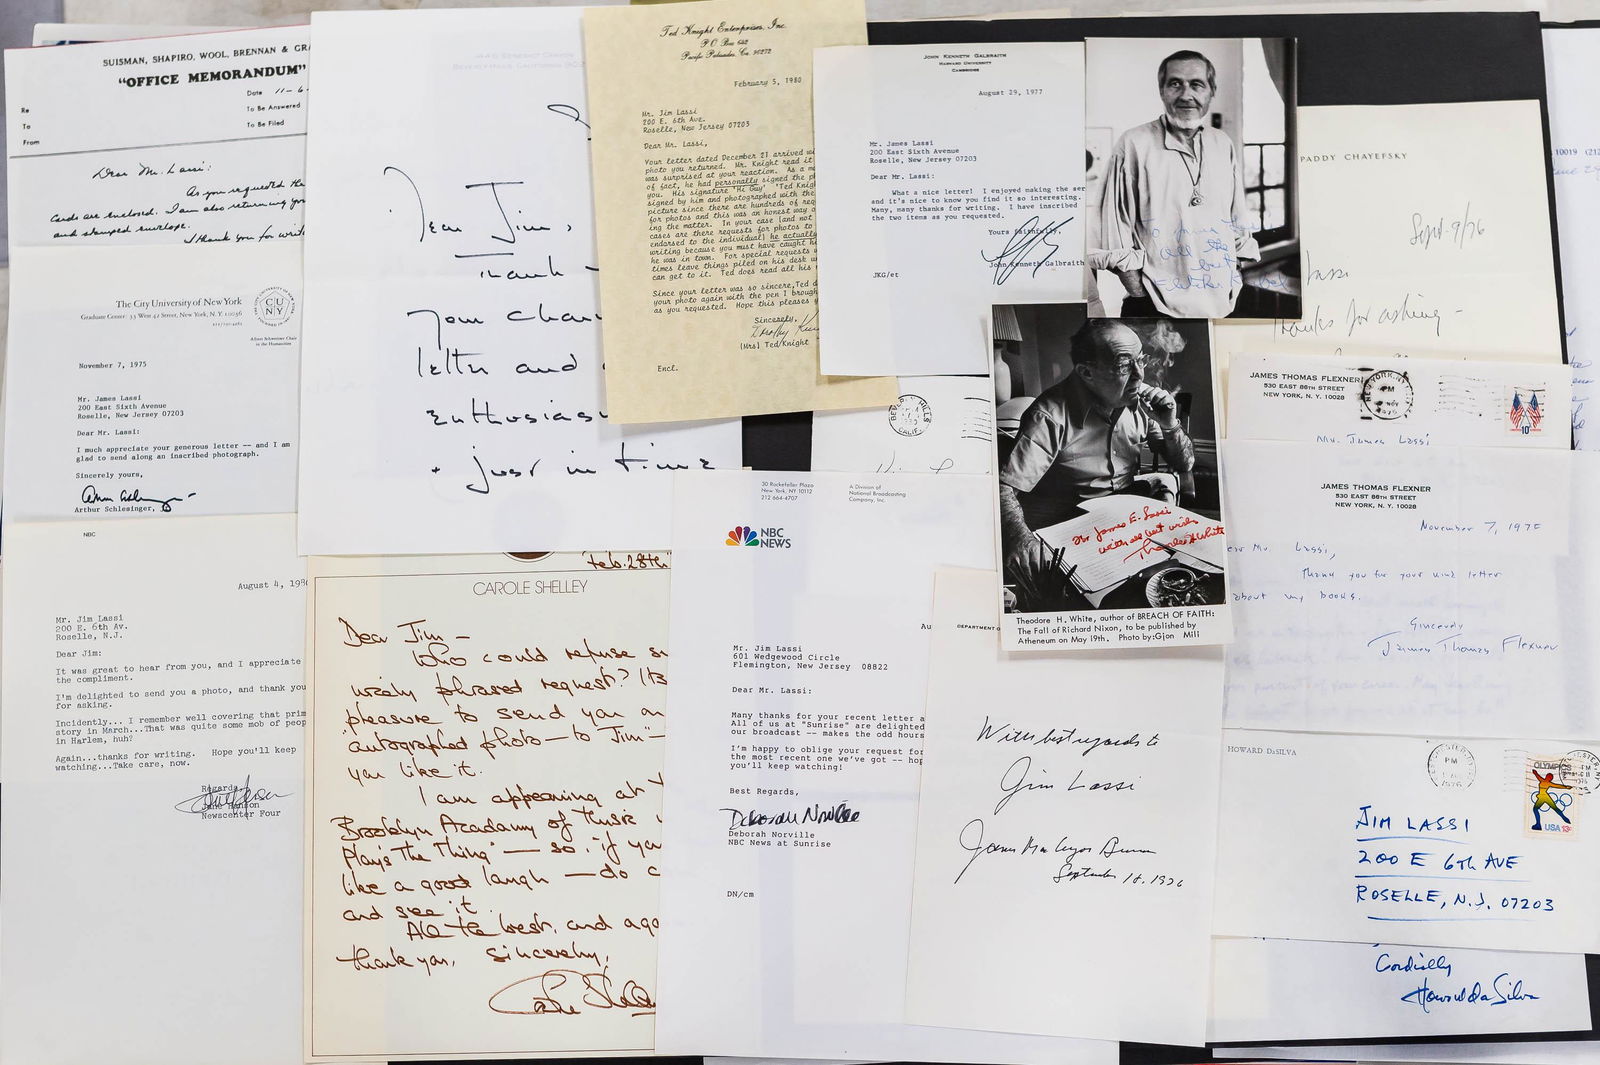 SUISMAN, SHAPIRO, WOOL, BRENNAN & GR
"OFFICE MEMORANDUM"
Date 11-6-
Re
To Be Answered
To
To Be Filed
From
Dear Mr. Lassi:
As you requested the
cards are enclosed. I am also returning your
and stamped envelope.
Thank you for writ
The City University of New York
Graduate Center: 33 West 42 Street, New York, N.Y. 10036
Albert Schweitzer Chair
in the Humanities
November 7, 1975
Mr. James Lassi
200 East Sixth Avenue
Roselle, New Jersey 07203
Dear Mr. Lassi:
I much appreciate your generous letter -- and I am
glad to send along an inscribed photograph.
Sincerely yours,
Arthur Schlesinger, Jr
NBC
August 4, 198
Mr. Jim Lassi
200 E. 6th Av.
Roselle, N.J.
Dear Jim:
It was great to hear from you, and I appreciate
the compliment.
I'm delighted to send you a photo, and thank you
for asking.
Incidently... I remember well covering that prim
story in March...That was quite some mob of peop
in Harlem, huh?
Again...thanks for writing. Hope you'll keep
watching...Take care, now.
Regards,
Jane Hanson
Newscenter Four
Dear Jim,
Thank -
your char
letter and
enthusias
+ just in time
Ted Knight Enterprises, Inc.
P.O. Box 642
Pacific Palisades, Ca. 90272
February 5, 1980
Mr. Jim Lassi
200 E. 6th Ave.
Roselle, New Jersey 07203
Dear Mr. Lassi,
Your letter dated December 21 arrived w
photo you returned. Mr. Knight read it
was surprised at your reaction. As a m
of fact, he had personally signed the p
you. His signature "Hi Guy" "Ted Knig
signed by him and photographed with the
picture since there are hundreds of req
for photos and this was an honest way o
ing the matter. In your case (and not
cases are there requests for photos to
endorsed to the individual) he actually
writing because you must have caught h
he was in town. For special requests
times leave things piled on his desk u
can get to it. Ted does read all his
Since your letter was so sincere, Ted d
your photo again with the pen I brough
as you requested. Hope this pleases y
Sincerely,
(Mrs) Ted/Knight
Encl.
JOHN KENNETH GALBRAITH
HARVARD UNIVERSITY
CAMBRIDGE
August 29, 1977
Mr. James Lassi
200 East Sixth Avenue
Roselle, New Jersey 07203
Dear Mr. Lassi:
What a nice letter! I enjoyed making the ser
and it's nice to know you find it so interesting.
Many, many thanks for writing. I have inscribed
the two items as you requested.
Yours faithfully,
John Kenneth Galbraith
JKG/et
To James
all the
best
Fletcher Knebel
BEVERLY HILLS
CALIF.
PADDY CHAYEFSKY
Sept. 9/76
Lassi
Thanks for asking -
10019 (212
JAMES THOMAS FLEXNER
530 EAST 86TH STREET
NEW YORK, N. Y. 10028
NEW YORK, N.Y.
PM
NOV
1975
10c
Mr. James Lassi
JAMES THOMAS FLEXNER
530 EAST 86TH STREET
NEW YORK, N. Y. 10028
November 7, 1975
ear Mr. Lassi,
Thank you for your kind letter
about my books.
Sincerely
James Thomas Flexner
For James E. Lassi
with all best wishes
Theodore H White
Theodore H. White, author of BREACH OF FAITH:
The Fall of Richard Nixon, to be published by
Atheneum on May 19th. Photo by:Gjon Mili
Feb. 28th
CAROLE SHELLEY
Dear Jim -
Who could refuse s
nicely phrased request? It's
pleasure to send you an
autographed photo - to "Jim" -
you like it.
I am appearing at
Brooklyn Academy of Music
Play's The Thing" - so if you
like a good laugh - do c
and see it.
All the best, and aga
thank you, sincerely,
Carole Shelley
30 Rockefeller Plaza
New York, NY 10112
212 664-4707
A Division of
National Broadcasting
Company, Inc.
NBC
NEWS
Au
Mr. Jim Lassi
601 Wedgewood Circle
Flemington, New Jersey 08822
Dear Mr. Lassi:
Many thanks for your recent letter a
All of us at "Sunrise" are delighted
our broadcast -- makes the odd hours
I'm happy to oblige your request for
the most recent one we've got -- hop
you'll keep watching!
Best Regards,
Deborah Norville
Deborah Norville
NBC News at Sunrise
DN/cm
DEPARTMENT O
With best regards to
Jim Lassi
James MacGregor Burns
September 18, 1976
HOWARD DaSILVA
PM
1976
OLYMPICS
USA 13c
JIM LASSI
200 E 6th AVE
ROSELLE, N.J. 07203
Cordially
Howard da Silva